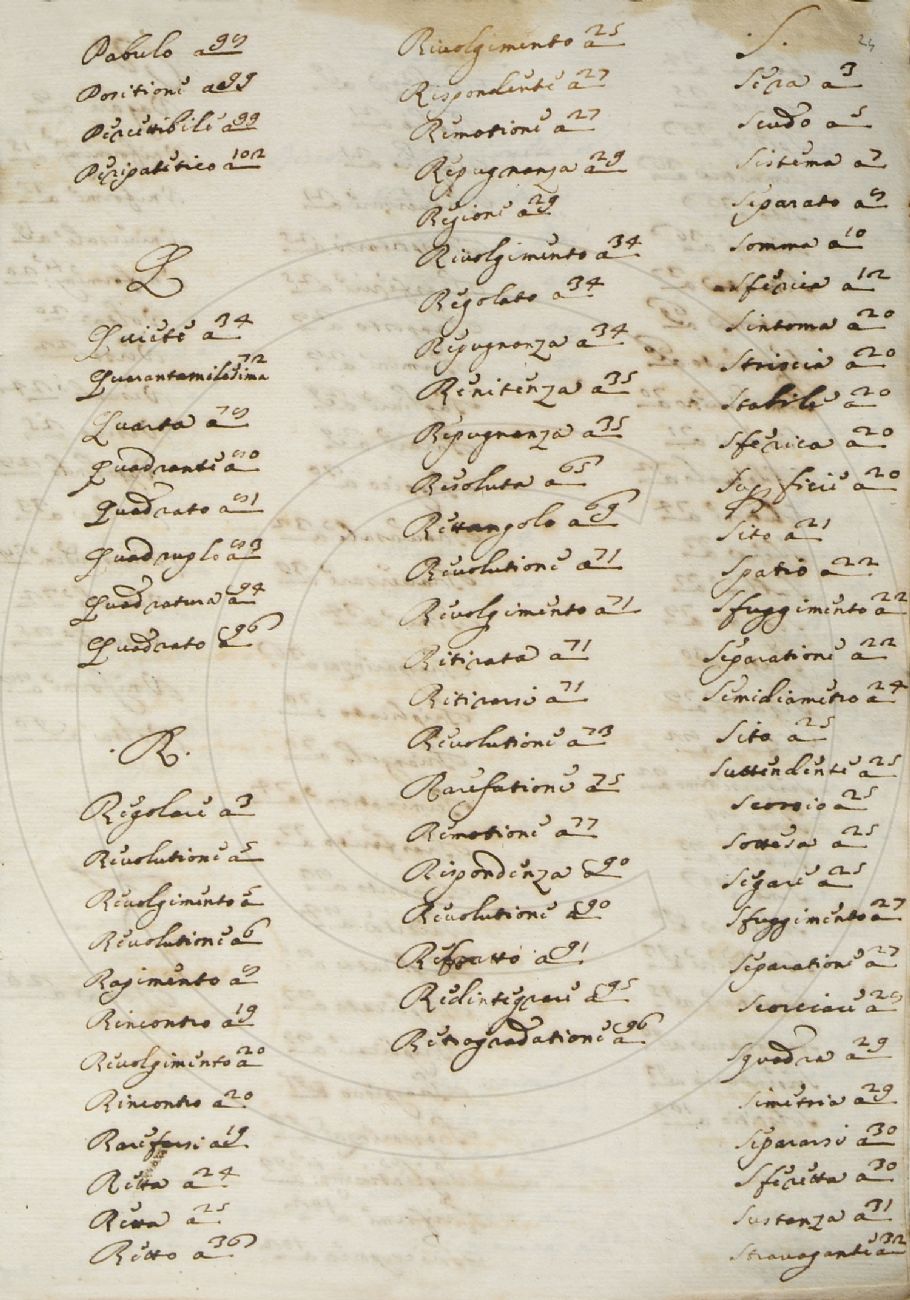 Pabulo a 99
Positione a 99
Percettibile a 99
Peripatetico a 102
Q
Quiete a 34
Quarantamilesima 72
Quarta a 79
Quadrante a 80
Quadrato a 81
Quadruplo a 83
Quadratura a 94
Quadrato a 96
.R.
Regolare a 3
Revolutione a 5
Revolgimento a 5
Revolutione a 6
Rapimento a 9
Rincontro a 19
Revolgimento a 20
Rincontro a 20
Rarefarsi a 19
Retta a 24
Retta a 25
Retto a 36
Rivolgimento a 25
Rispondente a 27
Remotione a 27
Repugnanza a 29
Regione a 29
Rivolgimento a 34
Regolato a 34
Repugnanza a 34
Renitenza a 35
Repugnanza a 35
Resoluta a 65
Rettangolo a 69
Revolutione a 71
Revolgimento a 71
Ritirata a 71
Ritirarsi a 71
Revolutione a 73
Rarefatione a 75
Remotione a 77
Rispondenza a 90
Revolutione a 90
Refratto a 91
Redintegrare a 95
Retrogradatione a 96
24
.S.
Sera a 3
Scudo a 5
Sistema a 7
Separato a 9
Somma a 10
Sferica a 12
Sintoma a 20
Striscia a 20
Stabile a 20
Sferica a 20
Superficie a 20
Sito a 21
Spatio a 22
Sfuggimento a 22
Separatione a 22
Semidiametro a 24
Sito a 25
Suttendente a 25
Scorcio a 25
Sottesa a 25
Segare a 25
Sfuggimento a 27
Separatione a 27
Scorciare a 28
Squadra a 29
Simetria a 29
Separarsi a 30
Sferetta a 30
Sustanza a 31
Stravagante a 32